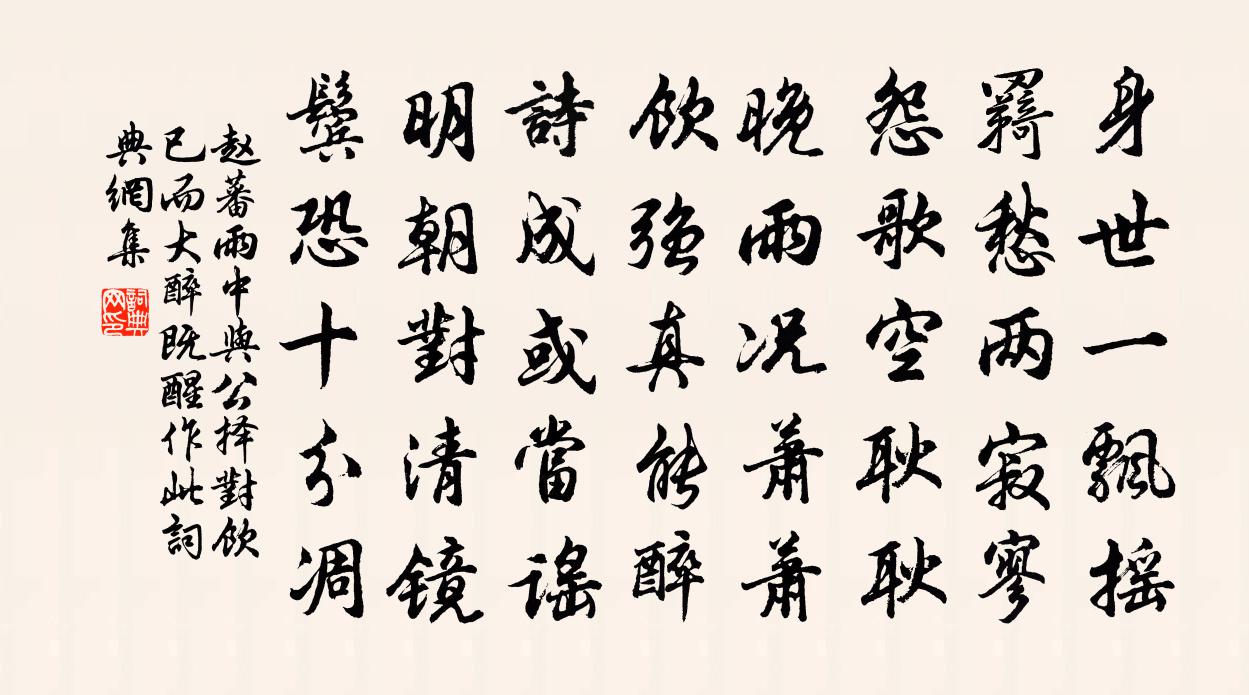 身世一飄摇
羇愁两寂寥
怨歌空耿耿
晚雨况蕭蕭
飲强真能醉
詩成或當謡
明朝對清镜
鬓恐十分凋
赵蕃雨中與公择對飲
已而大醉既醒作此詞
典網集
詞典网印